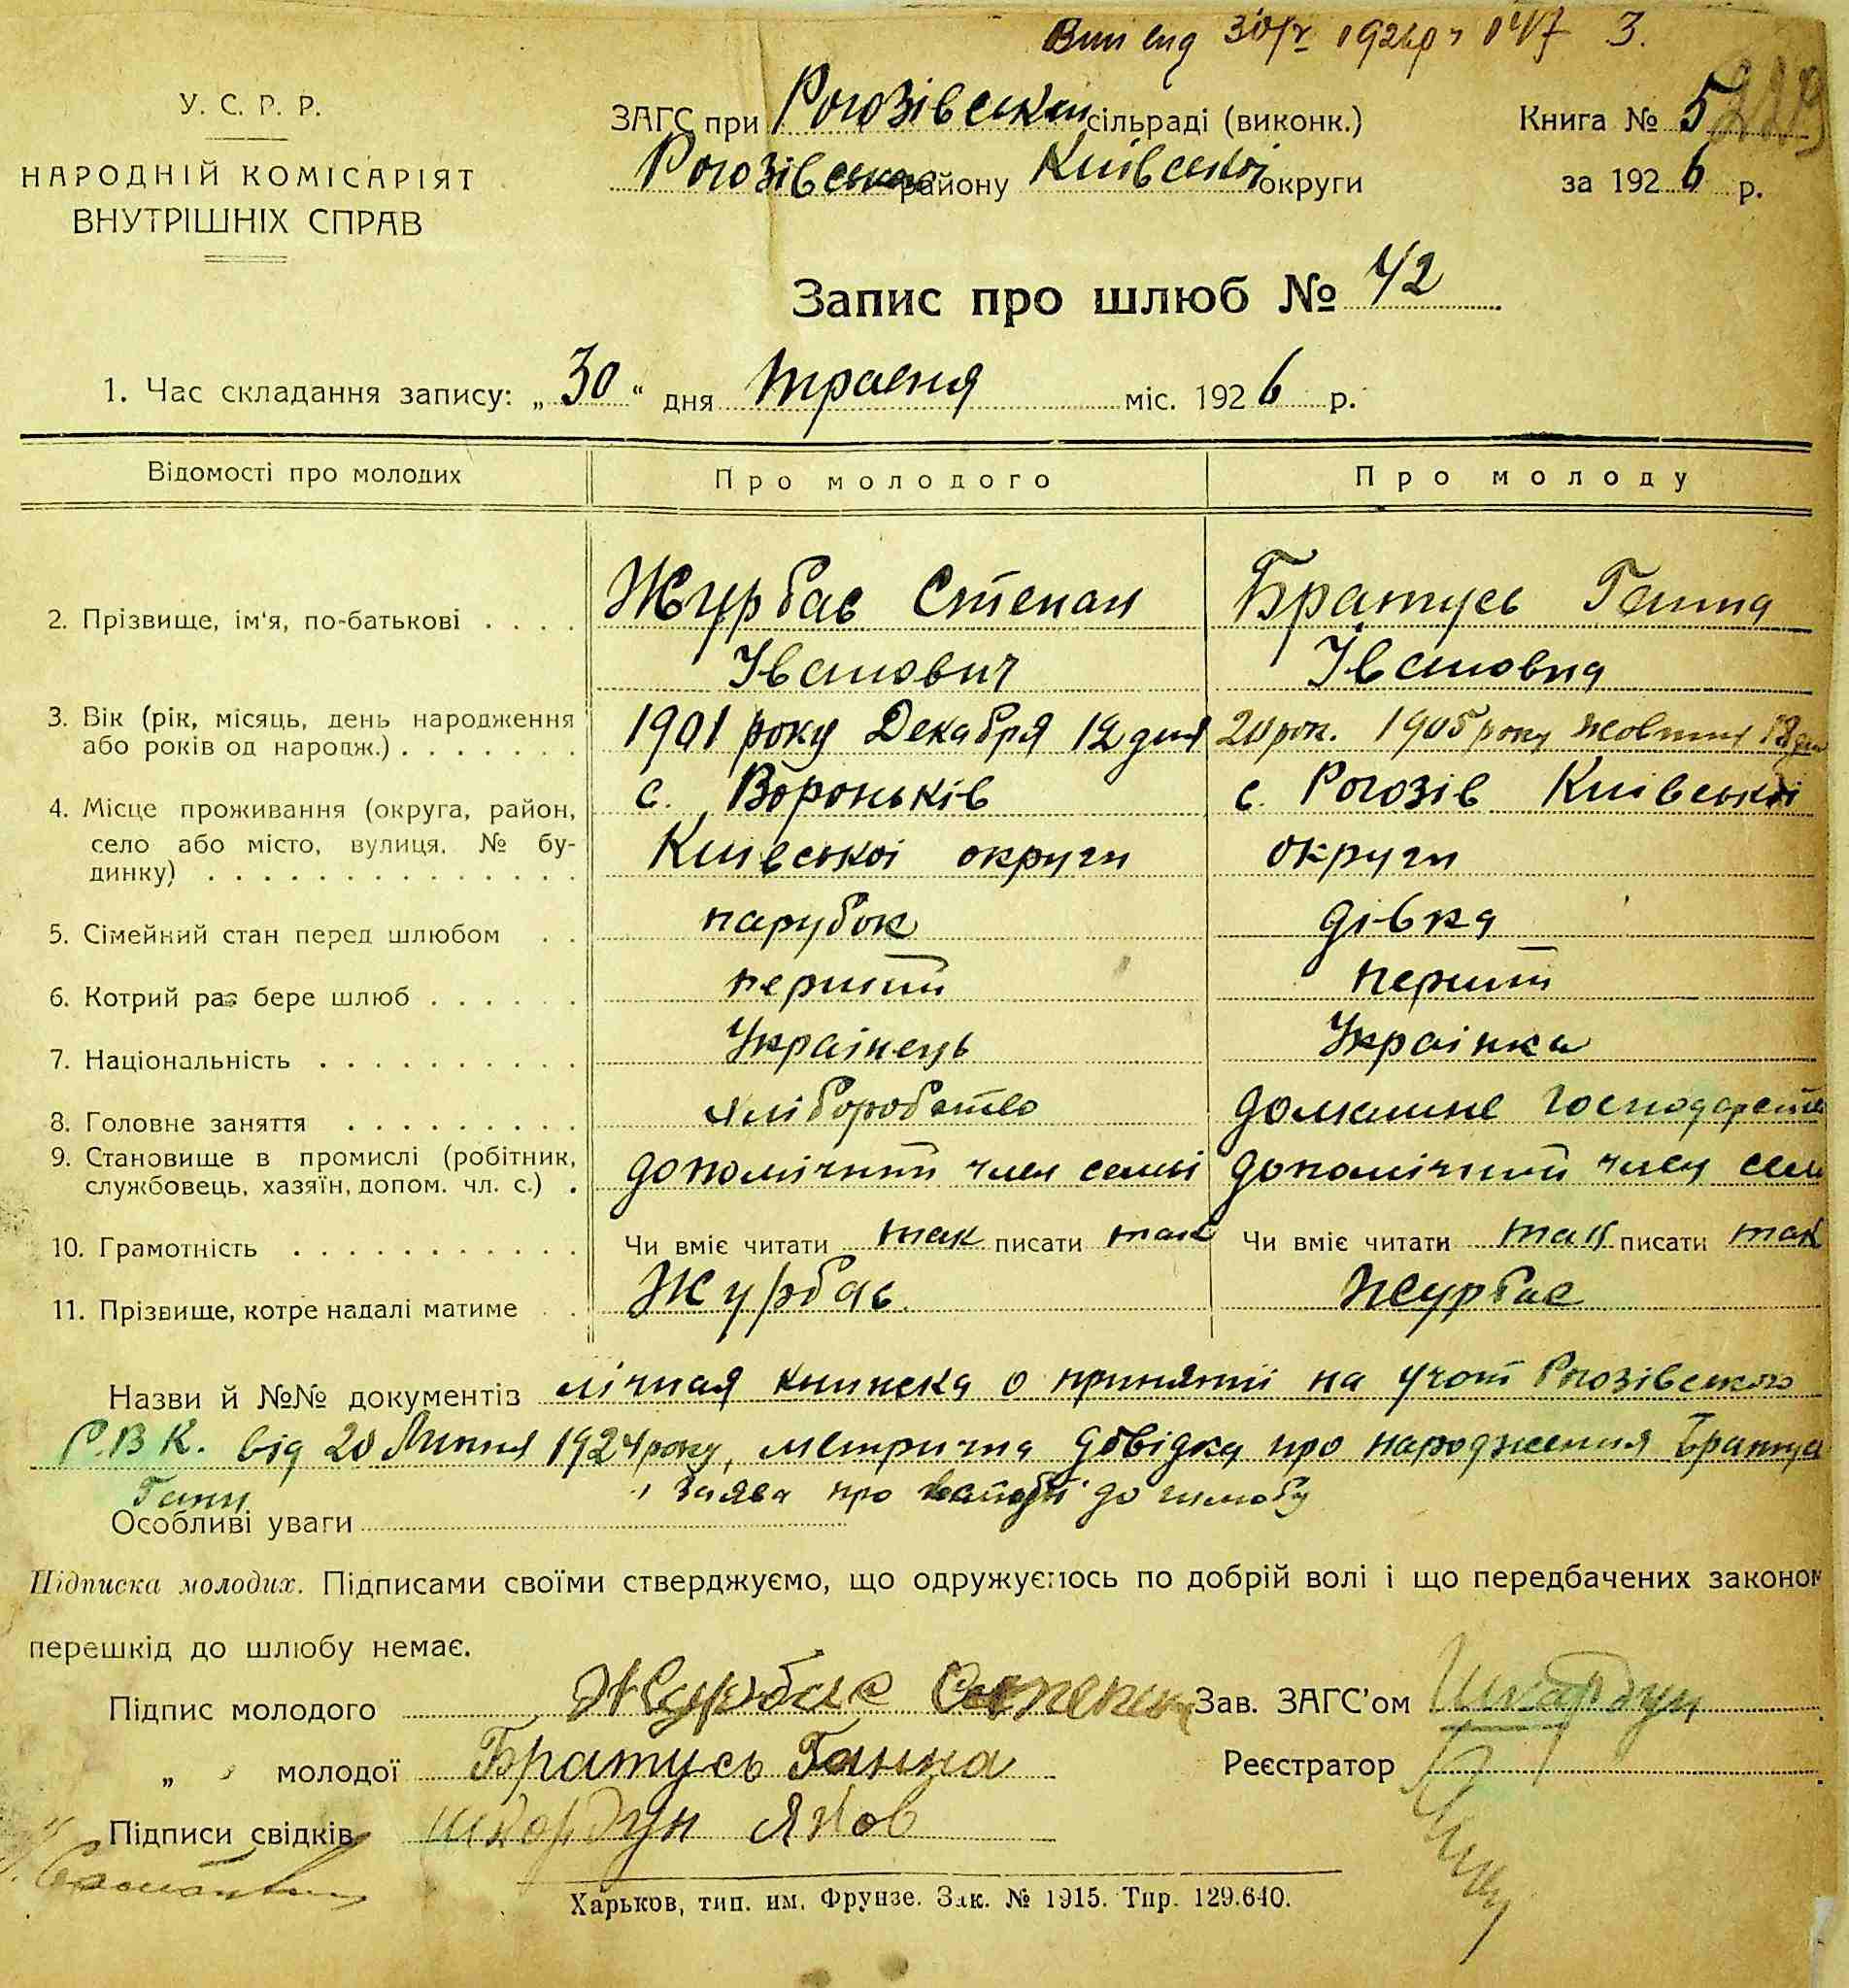 30/V 1926р № 47 З.
У. С. Р. Р.
НАРОДНІЙ КОМІСАРІЯТ
ВНУТРІШНІХ СПРАВ
ЗАГС при Рогозівській сільраді (виконк.)
Рогозівського району Київської округи
Книга № 5
за 1926 р.
Запис про шлюб № 42
1. Час складання запису: „30“ дня травня міс. 1926 р.
Відомості про молодих Про молодого Про молоду
2. Прізвище, ім'я, по-батькові . . . . Журбас Степан Братусь Ганна
Іванович Івановна
3. Вік (рік, місяць, день народження 1901 року Декабря 12 дня 20 рок. 1905 року жовтня 18 дня
або років од народж.) . . . . . . .
4. Місце проживання (округа, район, с. Вороньків с. Рогозів Київської
село або місто, вулиця, № бу- Київської округи округи
динку) . . . . . . . . . . . . . .
5. Сімейний стан перед шлюбом . . парубок дівка
6. Котрий раз бере шлюб . . . . . . перший перший
7. Національність . . . . . . . . . . Українець Українка
8. Головне заняття . . . . . . . . . хліборобство домашне господарств
9. Становище в промислі (робітник, допомічний член семьі допомічний член сем
службовець, хазяїн, допом. чл. с.) .
10. Грамотність . . . . . . . . . . . Чи вміє читати так писати так Чи вміє читати так писати так
11. Прізвище, котре надалі матиме . . Журбас Журбас
Назви й №№ документів лічная книжка о принятіі на учот Рогозівського
Р.В.К. від 20 Липня 1924 року, метрична довідка про народження Братусь
Ганни, Заява про до шлюбу
Особливі уваги
Підписка молодих. Підписами своїми стверджуємо, що одружуємось по добрій волі і що передбачених законом
перешкід до шлюбу немає.
Підпис молодого Журбас Степан Зав. ЗАГС'ом Шкордун
„ молодої Братусь Ганна Реєстратор
Підписи свідків Шкордун Яков
Харьков, тип. им. Фрунзе. Зак. № 1915. Тир. 129.640.